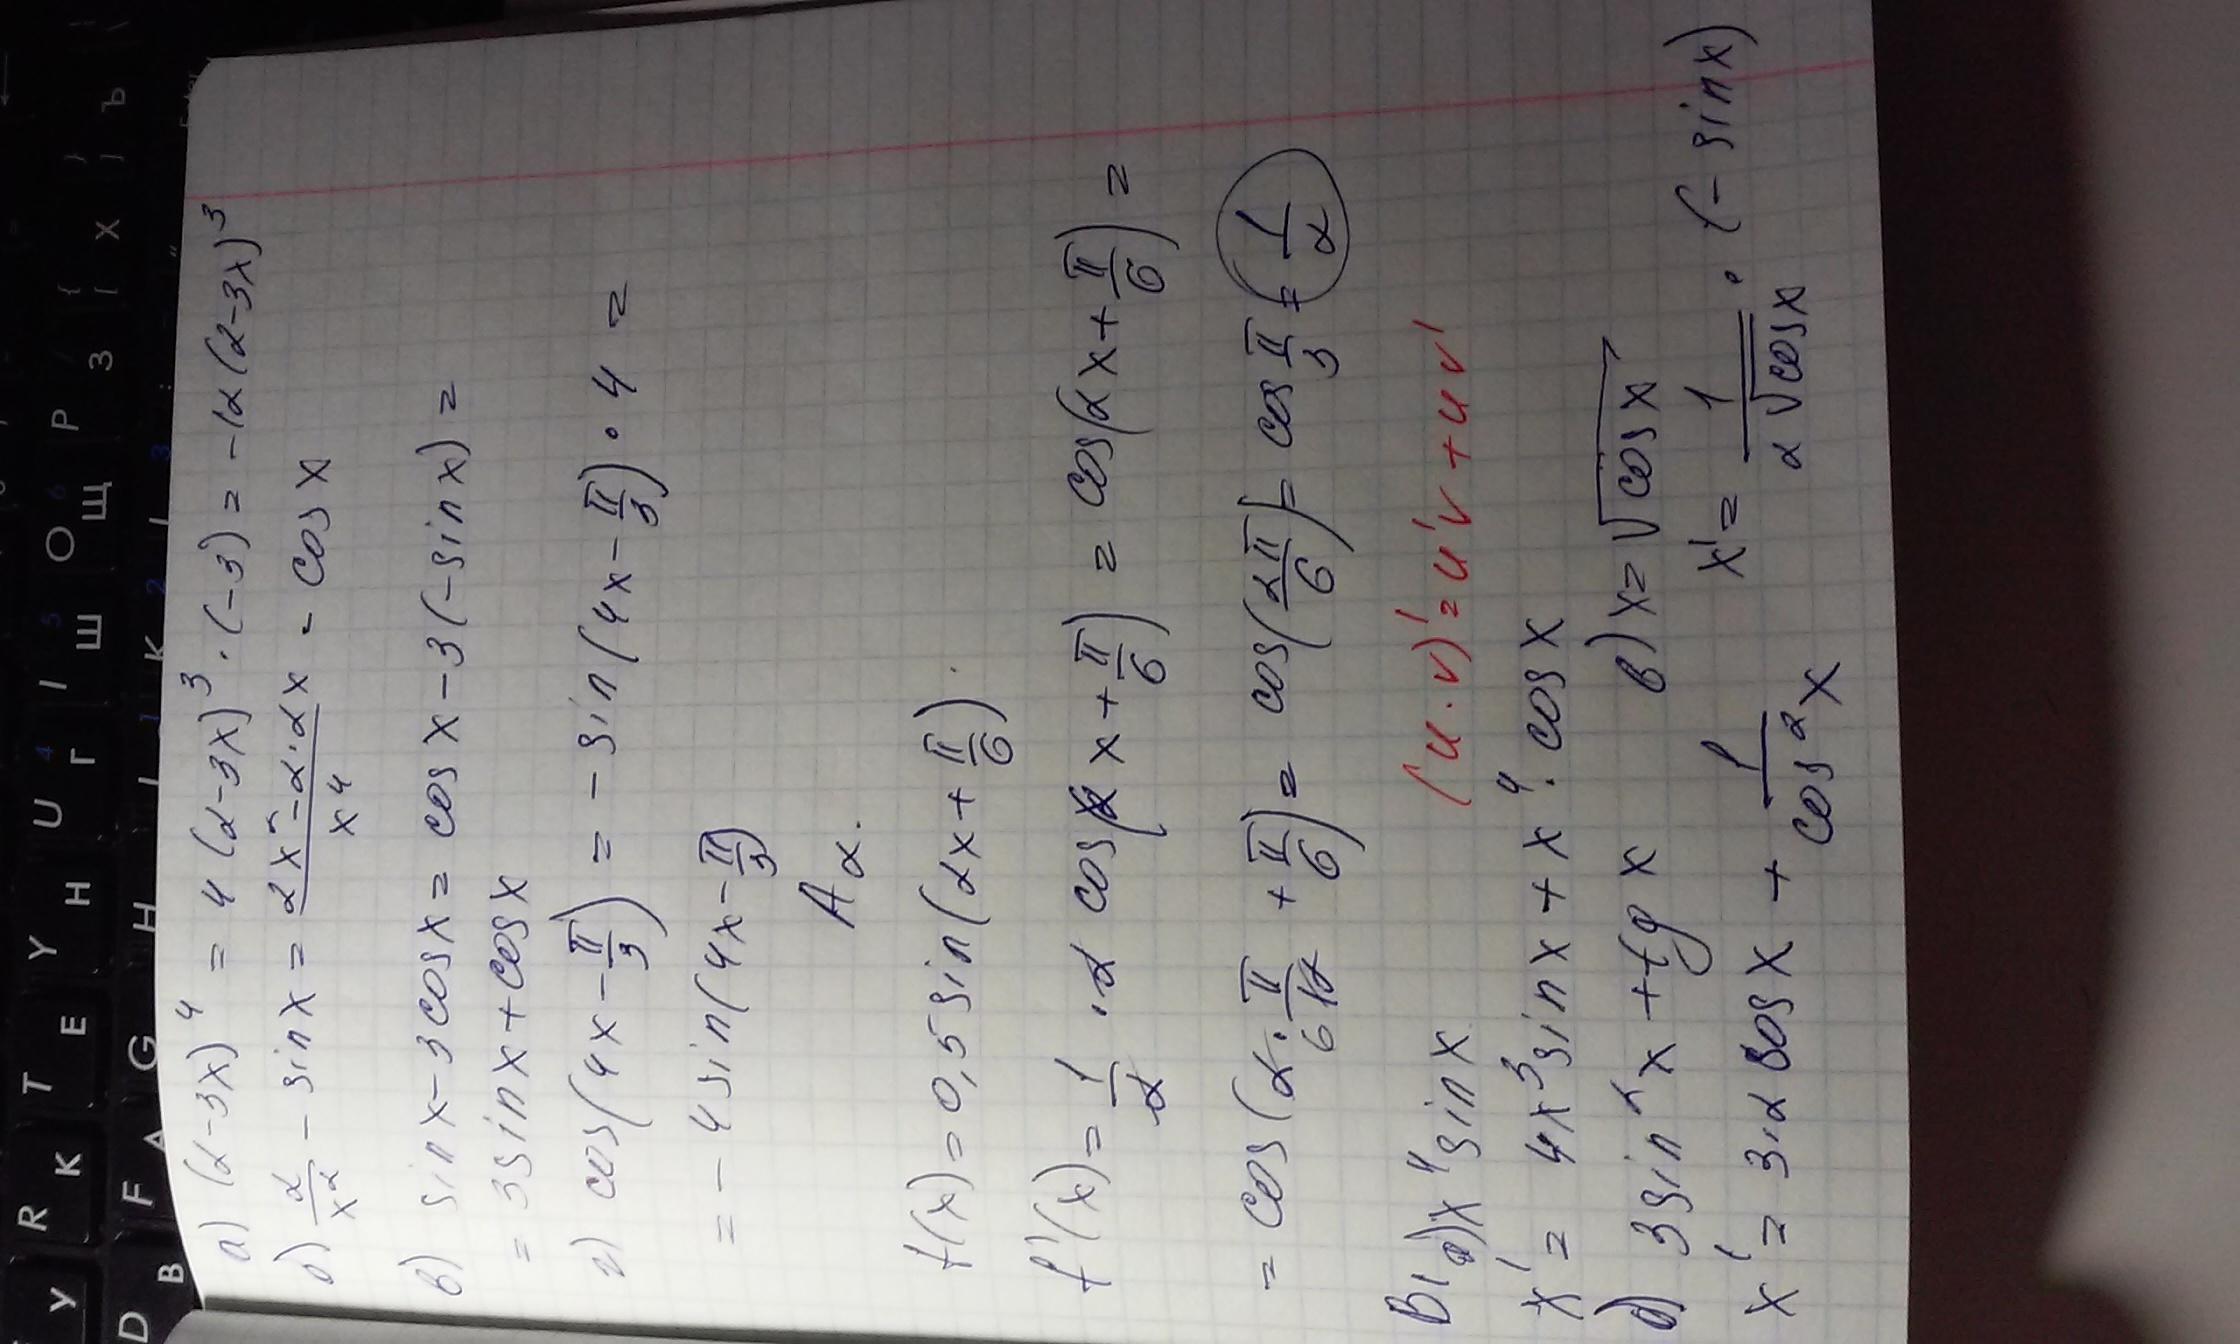 а) (2-3x)⁴ = 4(2-3x)³·(-3) = -12(2-3x)³
б) 2/x² - sin x = (2x² - 2·2x)/x⁴ - cos x
в) sin x - 3 cos x = cos x - 3(-sin x) =
= 3 sin x + cos x
г) cos(4x - π/3) = - sin(4x - π/3)·4 =
= - 4 sin(4x - π/3)
A2.
f(x) = 0,5 sin(2x + π/6).
f'(x) = 1/2 · 2 cos(2x + π/6) = cos(2x + π/6) =
= cos(2·π/12 + π/6) = cos(2π/6) = cos π/3 = 1/2
(u·v)' = u'v + uv'
B1 а) x⁴ sin x
x' = 4x³ sin x + x⁴· cos x
б) 3 sin² x + tg x
в) x = √cos x
x' = 3·2 cos x + 1/cos² x
x' = 1/(2√cos x) · (- sin x)
R T Y U
У К Е Н Г Ш Щ З Х Ъ
D F G H